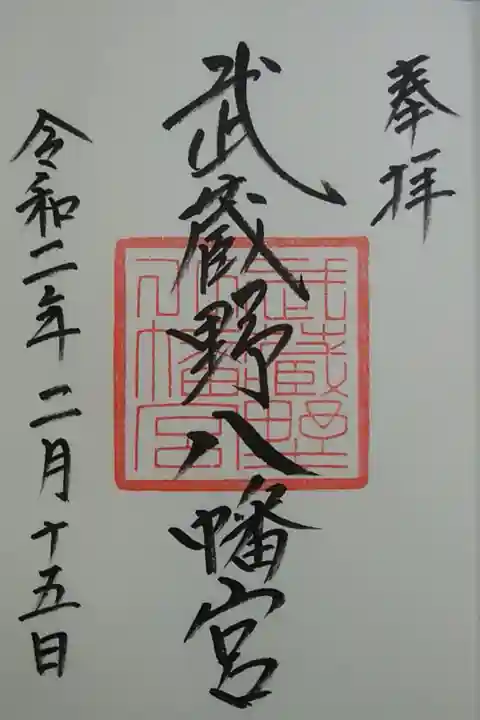 奉拝
武蔵野八幡宮
武蔵野八幡宮
令和二年二月十五日